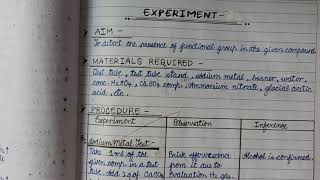 EXPERIMENT-
AIM -
To detect the presence of functional group in the given compound
MATERIALS REQUIRED -
Test tube, test tube stand, sodium metal, burner, water,
conc. H₂SO₄, CaSO₄ comp., Ammonium nitrate, glacial acetic
acid, etc.
PROCEDURE -
Experiment Observation Inference
Sodium Metal Test-
Take 1 ml of the Brisk effervescence Alcohol is confirmed.
given comp. in a test from it due to
tube. Add 1g of CaSO₄ evaluation H₂ gas.